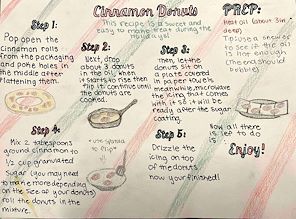 Cinnamon Donuts
This recipe is a sweet and
easy to make treat during the
holidays!
Step 1:
Pop open the
cinnamon rolls
from the packaging
and poke holes in
the middle after
flattening them.
Step 2:
Next, drop
about 3 donuts
in the oil, when
it starts to rise then
flip it. continue until
the donuts are
cooked.
*use spoon
to flip*
Step 3:
Then, let the
donuts sit on
a plate covered
in paper towels
meanwhile, microwave
the icing that comes
with it so it will be
ready after the sugar
coating.
PREP:
Heat oil (about 3 in
deep)
Tip: use a skewer
to see if the oil
is hot enough
(The end should
bubble)
Step 4:
Mix 2 tablespoons
ground cinnamon to
1/2 cup granulated
sugar (you may need
to make more depending
on the size of your donuts)
roll the donuts in the
mixture.
Step 5:
Drizzle the
icing on top
of the donuts
now your finished!
Now all there
is left to do
is
Enjoy!